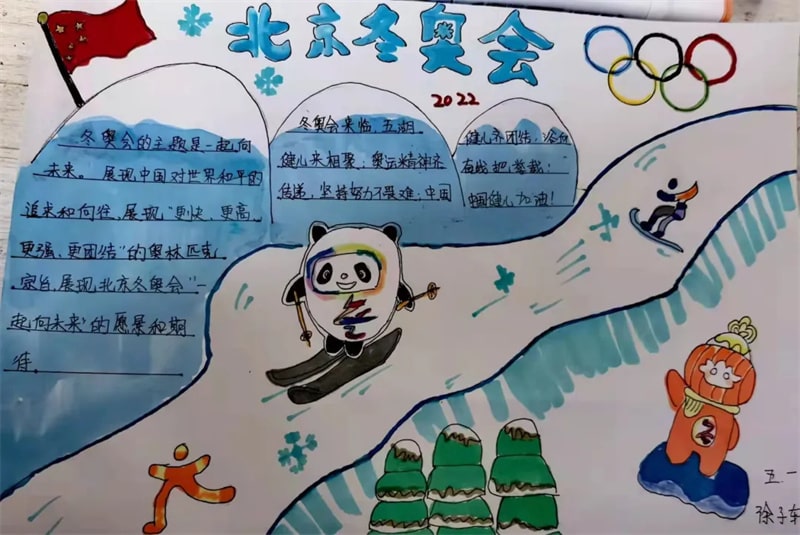 北京冬奥会
2022
冬奥会的主题是一起向
未来。展现中国对世界和平的
追求和向往,展现"更快、更高、
更强、更团结"的奥林匹克
宗旨,展现北京冬奥会"一
起向未来"的愿景和期
待。
冬奥会来临,五湖
健儿来相聚;奥运精神齐
传递,坚持努力不畏难;中国
健儿齐团结,
奋战把誉载!
中国健儿加油!
五一
徐子